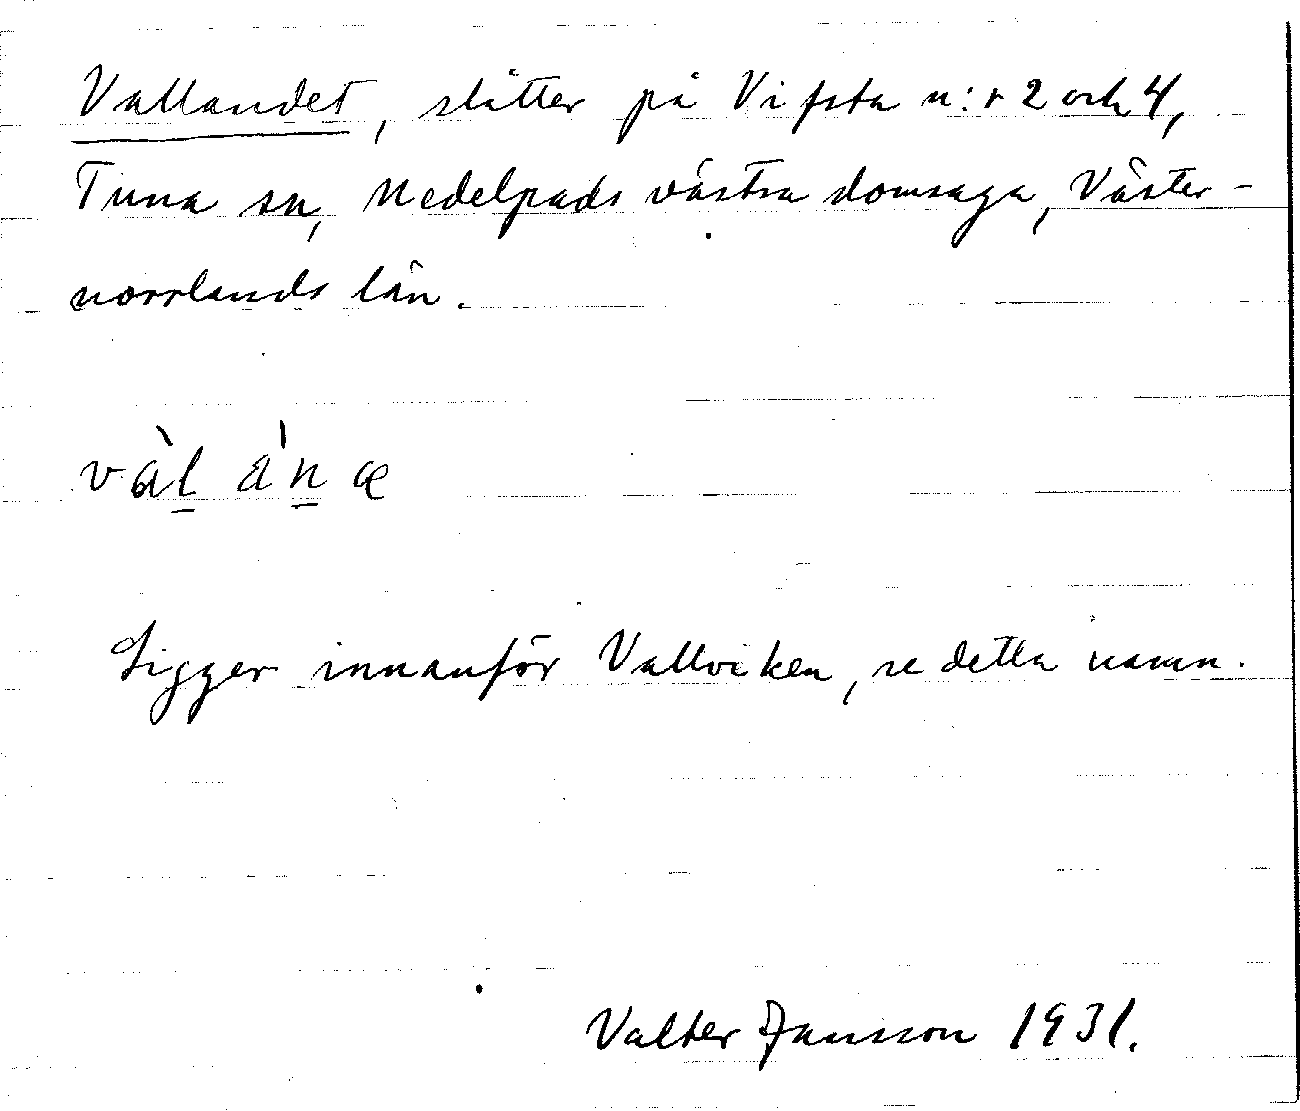 Vallandet, slåtter på Vifsta n:r 2 och 4,
Tuna sn, Medelpads västra domsaga, Väster-
norrlands län.
vàl ànæ
Ligger innanför Vallviken, se detta namn.
Valter Jansson 1931.